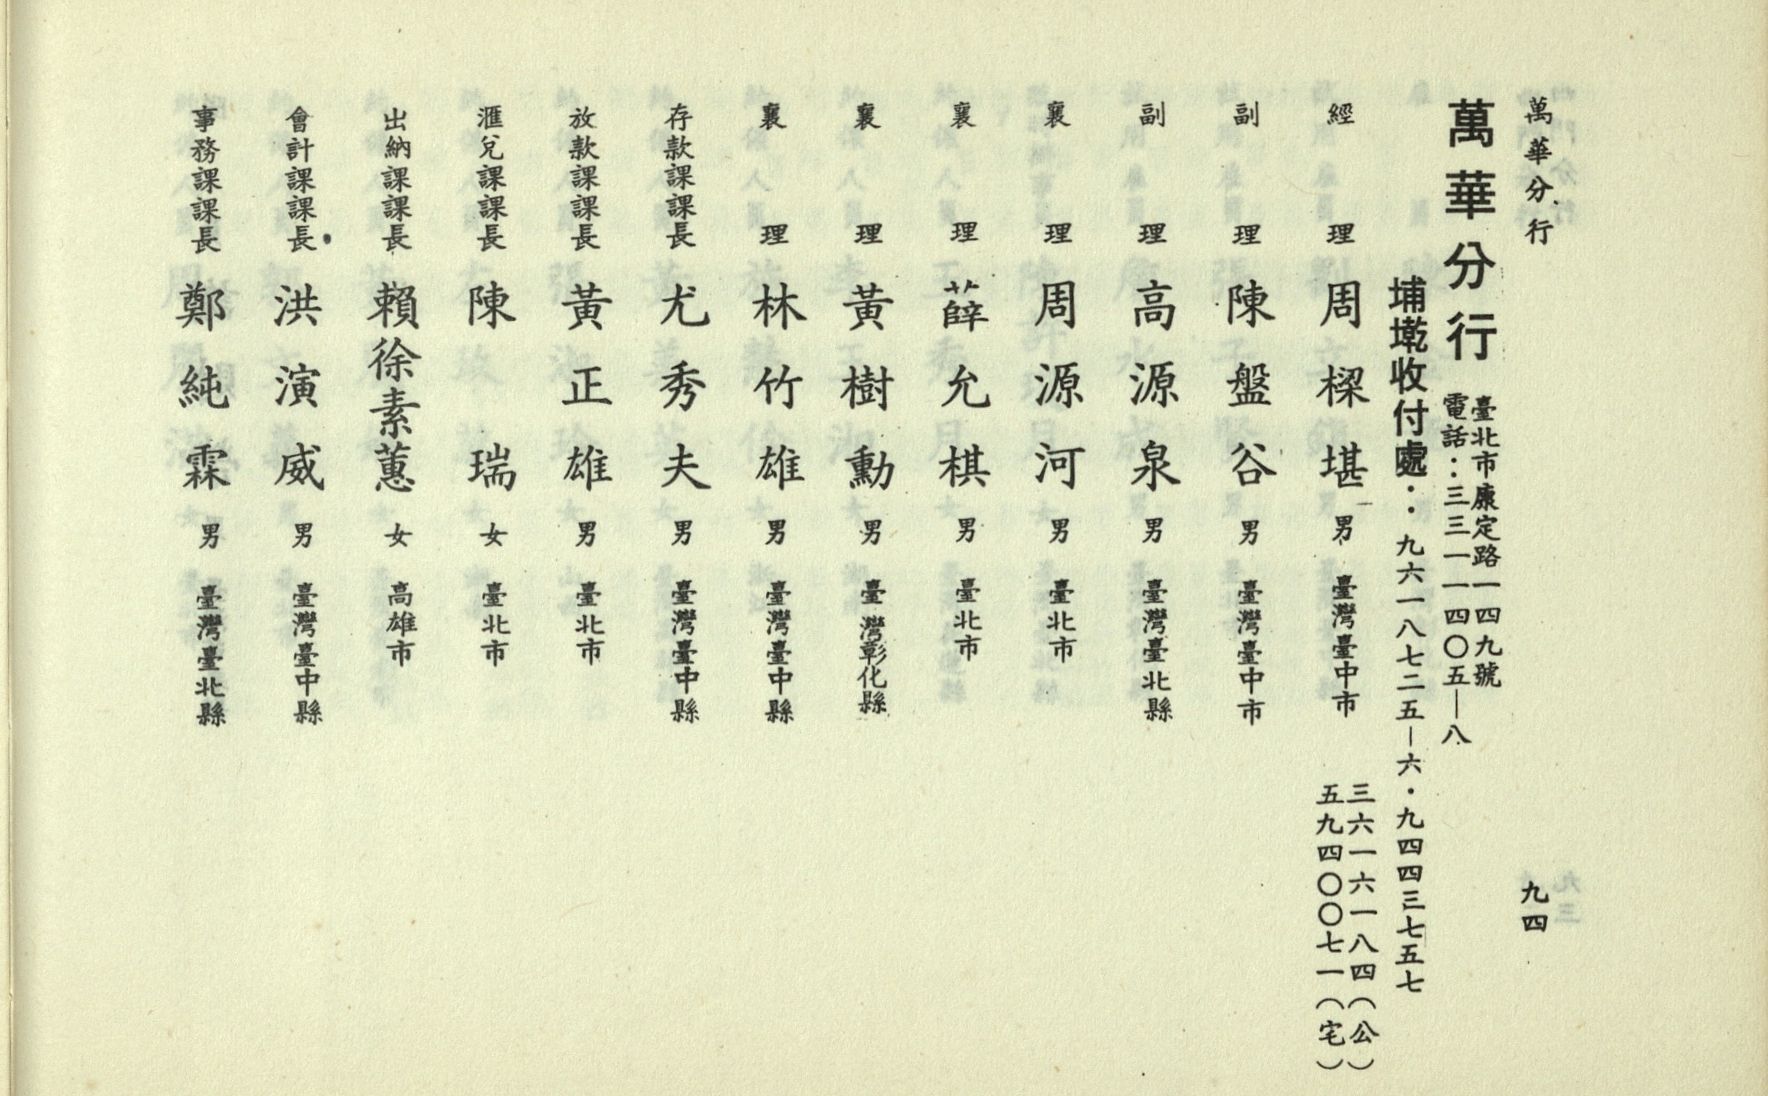 萬華分行
九四
萬華分行
臺北市康定路一四九號
電話：三三一一四〇五—八
埔墘收付處：九六一八七二五—六．九四四三七五七
經理 周樑堪 男 臺灣臺中市 三六一六一八四（公）
五九四〇〇七一（宅）
副理 陳盤谷 男 臺灣臺中市
副理 高源泉 男 臺灣臺北縣
襄理 周源河 男 臺北市
襄理 薛允棋 男 臺北市
襄理 黃樹勳 男 臺灣彰化縣
襄理 林竹雄 男 臺灣臺中縣
存款課課長 尤秀夫 男 臺灣臺中縣
放款課課長 黃正雄 男 臺北市
滙兌課課長 陳瑞 女 臺北市
出納課課長 賴徐素蕙 女 高雄市
會計課課長 洪演威 男 臺灣臺中縣
事務課課長 鄭純霖 男 臺灣臺北縣